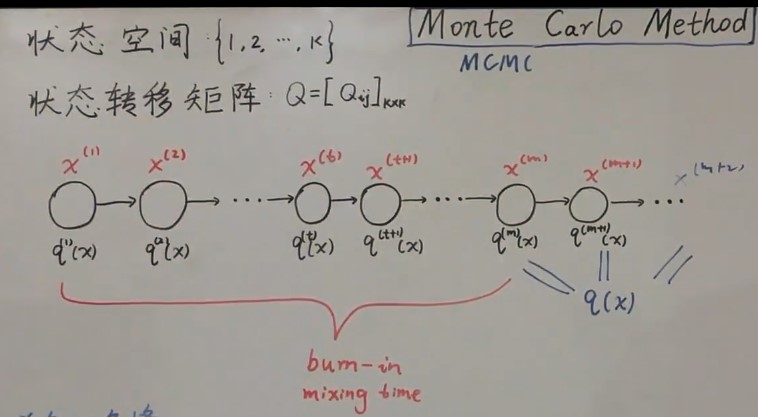 状态空间:{1,2,…,K}
Monte Carlo Method
MCMC
状态转移矩阵: Q=[Qij]K×K
x^(1) x^(2) x^(t) x^(t+1) x^(m) x^(m+1) x^(m+2)
… … …
q^(1)(x) q^(2)(x) q^(t)(x) q^(t+1)(x) q^(m)(x) q^(m+1)(x)
q(x)
burn-in
mixing time